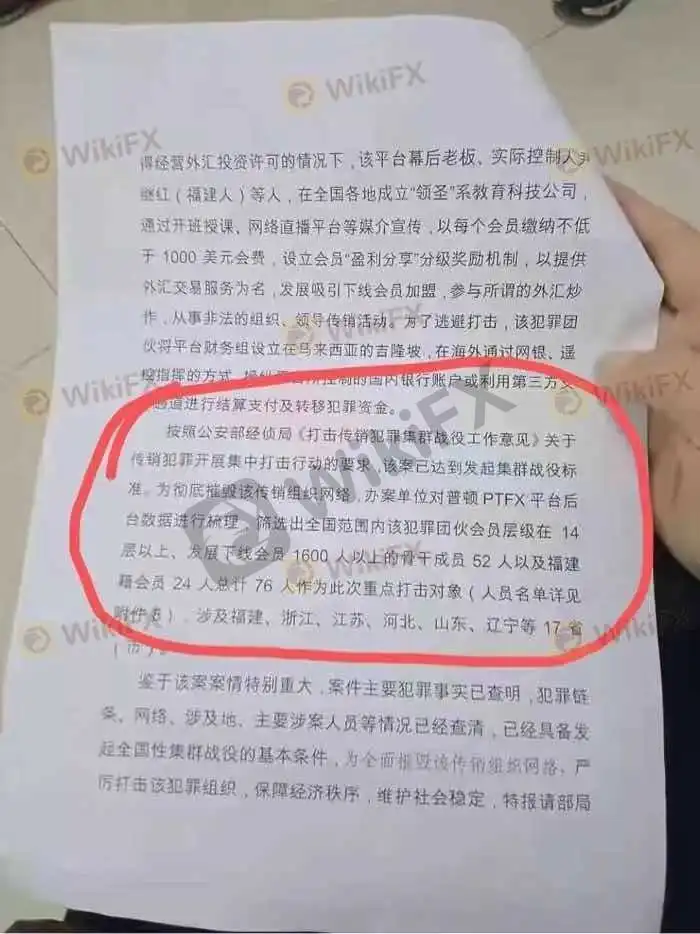 得经营外汇投资许可的情况下，该平台幕后老板、实际控制人尹
继红（福建人）等人，在全国各地成立“领圣”系教育科技公司，
通过开班授课、网络直播平台等媒介宣传，以每个会员缴纳不低
于 1000 美元会费，设立会员“盈利分享”分级奖励机制，以提供
外汇交易服务为名，发展吸引下线会员加盟，参与所谓的外汇炒
作，从事非法的组织、领导传销活动。为了逃避打击，该犯罪团
伙将平台财务组设立在马来西亚的吉隆坡，在海外通过网银、遥
控指挥的方式，控制的国内银行账户或利用第三方支
通道进行结算支付及转移犯罪资金。
按照公安部经侦局《打击传销犯罪集群战役工作意见》关于
传销犯罪开展集中打击行动的要求，该案已达到发起集群战役标
准。为彻底摧毁该传销组织网络，办案单位对普顿 PTFX 平台后
台数据进行梳理，筛选出全国范围内该犯罪团伙会员层级在 14
层以上、发展下线会员 1600 人以上的骨干成员 52 人以及福建
籍会员 24 人总计 76 人作为此次重点打击对象（人员名单详见
附件 6），涉及福建、浙江、江苏、河北、山东、辽宁等 17 省
（市）。
鉴于该案案情特别重大，案件主要犯罪事实已查明，犯罪链
条、网络、涉及地、主要涉案人员等情况已经查清，已经具备发
起全国性集群战役的基本条件，为全面摧毁该传销组织网络、严
厉打击该犯罪组织，保障经济秩序，维护社会稳定，特报请部局
WikiFX
WikiFX
WikiFX
WikiFX
WikiFX
WikiFX
WikiFX
WikiFX
WikiFX